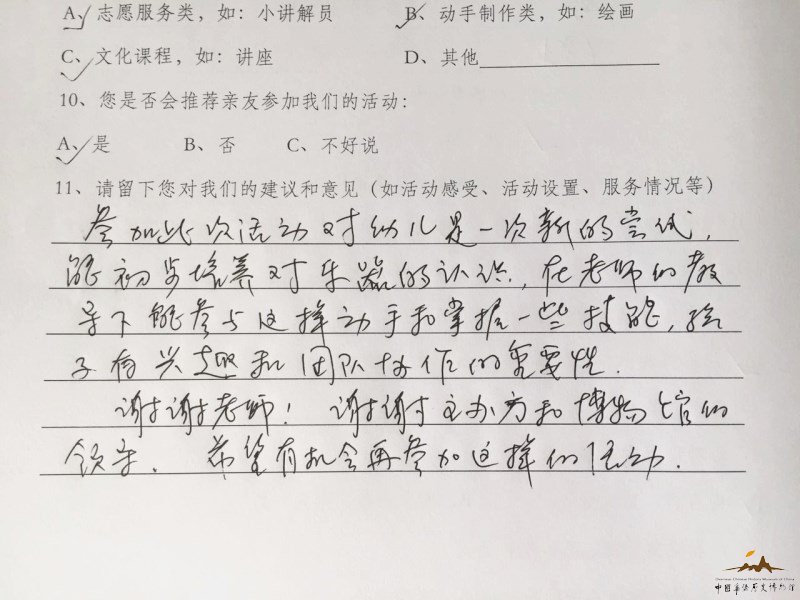 A、志愿服务类，如：小讲解员 B、动手制作类，如：绘画
C、文化课程，如：讲座 D、其他
10、您是否会推荐亲友参加我们的活动：
A、是 B、否 C、不好说
11、请留下您对我们的建议和意见（如活动感受、活动设置、服务情况等）
参加此次活动对幼儿是一次新的尝试，
能初步培养对乐器的认识，在老师的教
导下能参与这样动手和掌握一些技能，孩
子有兴趣和团队协作的重要性.
谢谢老师！谢谢主办方和博物馆的
领导. 希望有机会再参加这样的活动.
Overseas Chinese History Museum of China
中国华侨历史博物馆